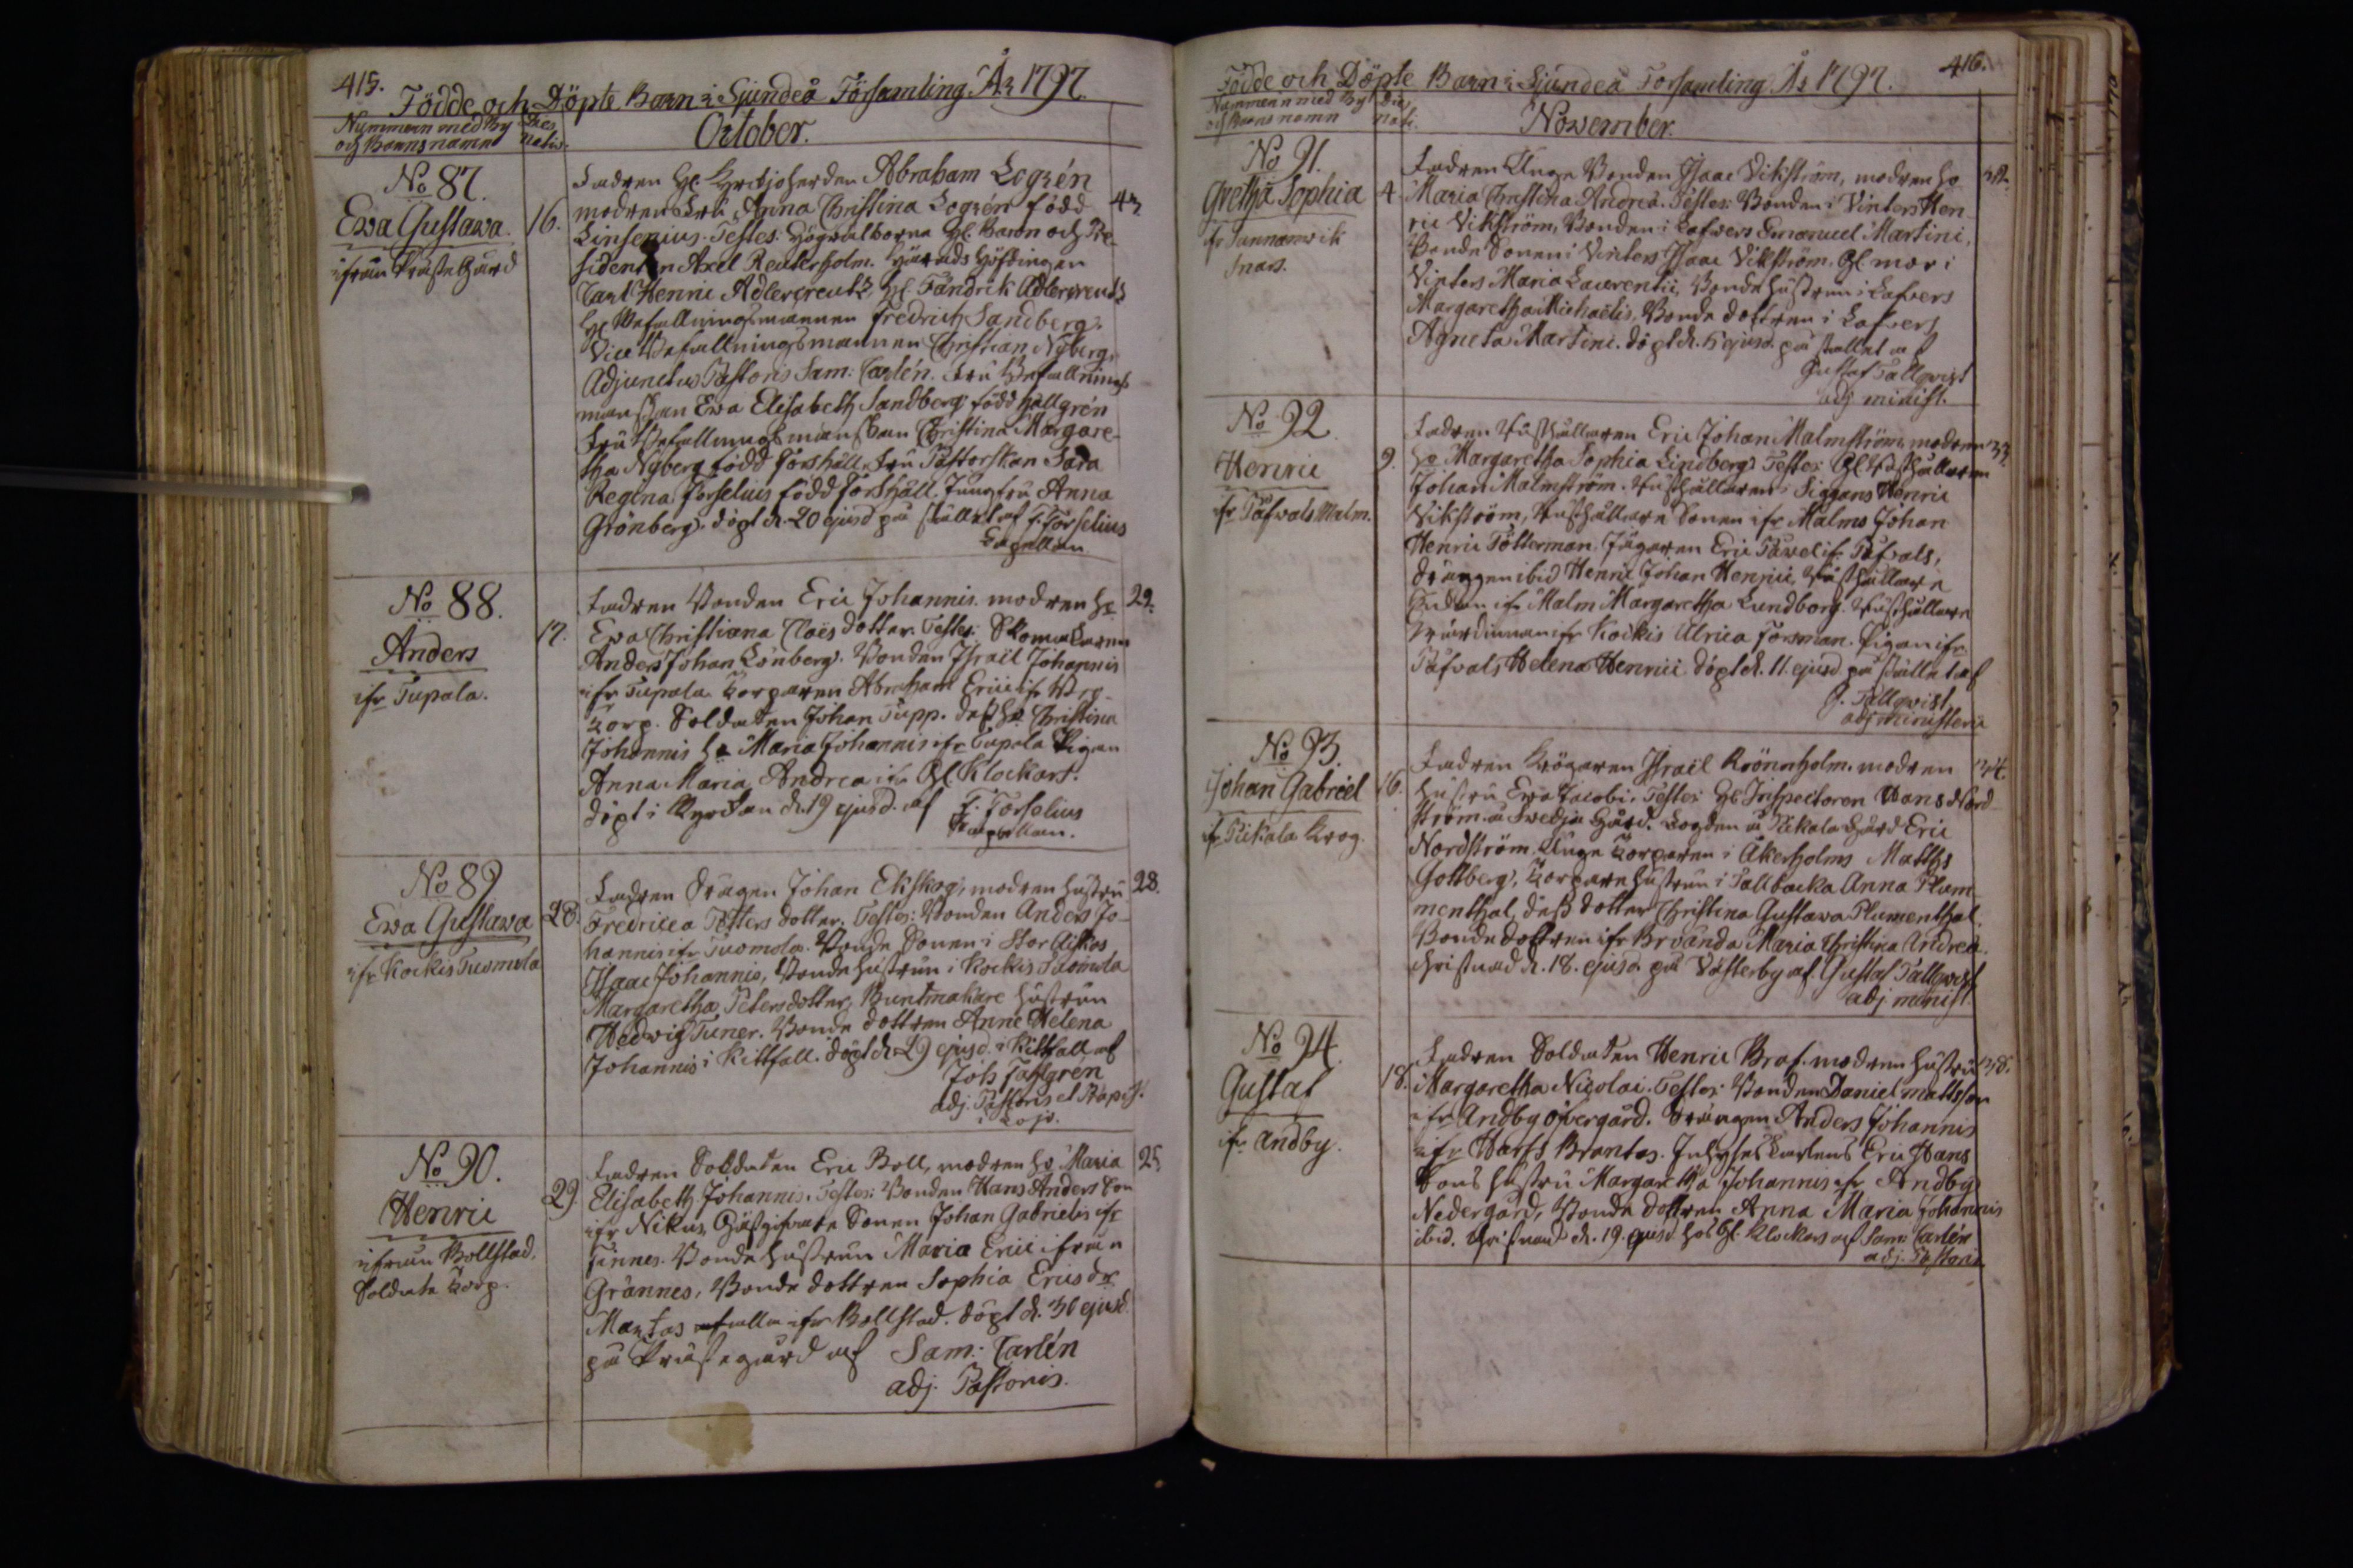 415.
Födde och Döpte Barn i Sjundeå Församling År 1797.
Nummern med By
och Barns namn
Dies
nativ.
October.
No 87.
Ewa Gustawa.
ifrån Prästegård
16.
Fadren H. Kyrckjoherden Abraham Logrén
modren Fru Anna Christina Logrén född
Linsenius. Testes: Högvälborna H. Baron och Pre-
sidenten Axel Reuterholm. Härads Höfdingen
Carl Henric Adlercreutz, H. Fändrik Adlercreutz
H. Befallningsmannen Fredrich Sandberg.
Vice Befallningsmannen Christian Nyberg,
Adjunctus Pastoris Sam: Carlén. Fru Befallnings
manskan Ewa Elisabeth Sandberg född Hallgrén
Fru Befallningsmanskan Christina Margare-
tha Nyberg född Forshäll. Fru Pastorskan Sara
Regina Forselius född Forshäll. Jungfru Anna
Grönberg. döpt d. 20 ejusd på stället af F. Forselius
Capellan
43
No 88.
Anders
ifr Tupala.
17.
Fadren Bonden Eric Johannis. modren H:
Ewa Christiana Claës dotter. Testes: Skomakaren
Anders Johan Lönberg. Bonden Israël Johannis
ifr Tupala. Torparen Abraham Erici ifr
Torp. Soldaten Johan Tupp. dess H: Christina
Johannis H: Maria Johannis ifr Tupala Pigan
Anna Maria Andreæ ifr Gl Klockars.
döpt i Kyrckan d. 19 ejusd. af F. Forselius
Kapellan.
29.
No 89
Ewa Gustawa
ifr Kockis Tuomola
28.
Fadren drägen Johan Ekskog, modren hustru
Fredricca Petters dotter. Testes: Bonden Anders Jo-
hannis ifr Tuomola. Bonde Sonen i Stor
Isaac Johannis, Bonde hustrun i Kockis Tuomola
Margaretha Petersdotter, Buntmakare hustrun
Hedwig Tuner. Bonde dottren Anne Helena
Johannis i Kittfall. döpt d. 29 ejusd. i Kittfall af
Joh Tahlgren
adj. Pastoris
i Lojo.
28.
No 90.
Henric
ifrån Bollstad.
Soldate Torp.
29
Fadren Soldaten Eric Boll, modren H: Maria
Elisabeth Johannis. Testes: Bonden Hans Anders son
ifr Nikus, Gästgifvare Sonen Johan Gabrielis ifr
Finnes. Bonde hustrun Maria Erici ifrån
Grännes, Bonde dottren Sophia Ericsdr
Martas alla ifr Bollstad. döpt d. 30 ejusd.
på Prästegård af Sam: Carlén
adj. Pastoris.
25.
416.
Födde och Döpte Barn i Sjundeå Forsamling År 1797.
Nummern med By
och Barns namn
Die
nati.
November.
No 91.
Gretha Sophia
ifr Sunnanwik
4.
Fadren Unge Bonden Isaac Vikström, modren H:
Maria Christina Andreæ. Testes: Bonden i Vinters Hen-
ric Vikström, Bonden i Lafvers Emanuel Martini,
Bonde Sonen i Vinters Isaac Vikström. Gl. mor i
Vinters Maria Laurentii, Bonde hustrun i Lafvers
Margaretha Michaëlis, Bonde dottren i Lafvers
Agneta Martini. döpt d. 5 ejusd. på stället af
Gustaf Tallqvist
adj minist.
32.
No 92.
Henric
ifr Päfvals Malm.
9.
Fadren Rusthållaren Eric Johan Malmström, modren
H: Margaretha Sophia Lindberg. Testes: Gl. Rusthållaren
Johan Malmström. Rusthållaren i Siggans Henric
Vikström, Rusthållare Sonen ifr Malms Johan
Henric Tötterman. Jägaren Eric Pavel ifr Päfvals,
drängen ibid Henric Johan Henrici, Rusthållare
ifr Malm Margaretha Lundborg. Rusthållare
värdinnan ifr Kockis Ulrica Forsman. Pigan ifr
Päfvals Helena Henrici döpt d. 11. ejusd. på stället af
G. Tallqvist
adj ministerii
33.
No 93.
Johan Gabriel
ifr Pikala Krog.
16.
Fadren Krögaren Israël Krönnholm. modren
hustru Ewa Jacobi. Testes: H. Inspectoren Hans Nord-
ström å Swedja Gård. Fogden å Pikala Gård Eric
Nordström, Unge Torparen i Åkerholms Matths
Gottberg, Torpare hustrun i Tallbacka Anna Plum-
menthal, dess dotter Christina Gustawa Plumenthal.
Bonde dottren ifr Brvånda Maria Christina Andreæ.
Christnad d. 18. ejusd. på Västerby af Gustaf Tallqvist
adj minist.
34.
No 94.
Gustaf
ifr Andby.
18.
Fadren Soldaten Henric Braf. modren hustru
Margaretha Nicolai. Testes: Bonden Daniel mattsson
ifr Andby öfvergård. Drängen Anders Johannis
ifr Harfs Brantas. Inhyses Karlens Eric Hans
Sons hustru Margaretha Johannis ifr Andby
Nedergård, Bonde dottren Anna Maria Johannis
ibid. Christnad d. 19. ejusd. hos Gl. Klockars af Sam: Carlén
adj. Pastoris
38.